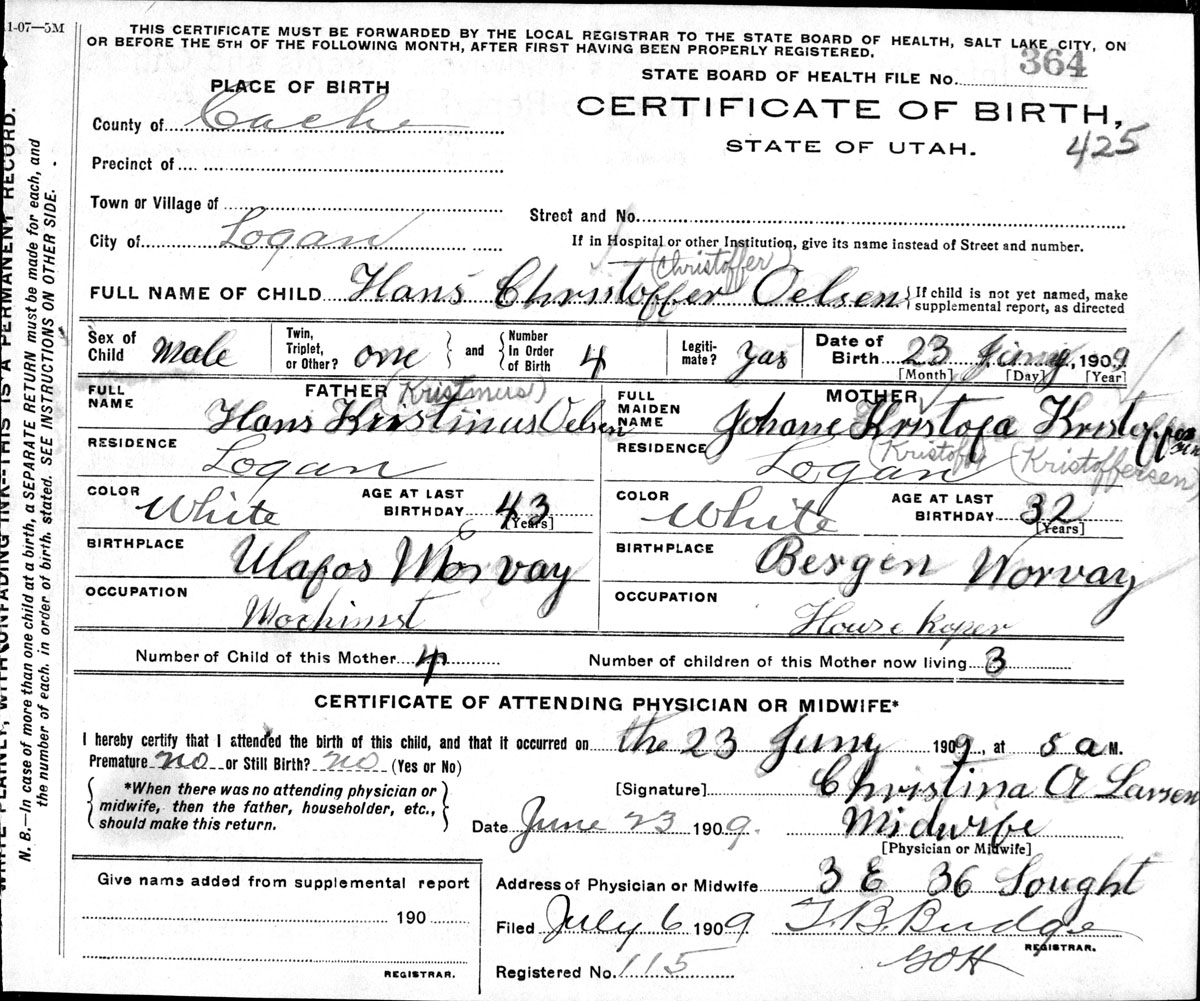 1-07—5M
THIS CERTIFICATE MUST BE FORWARDED BY THE LOCAL REGISTRAR TO THE STATE BOARD OF HEALTH, SALT LAKE CITY, ON
OR BEFORE THE 5TH OF THE FOLLOWING MONTH, AFTER FIRST HAVING BEEN PROPERLY REGISTERED.
STATE BOARD OF HEALTH FILE No. 364
PLACE OF BIRTH
CERTIFICATE OF BIRTH,
County of Cache
STATE OF UTAH. 425
Precinct of
Town or Village of
Street and No.
City of Logan
If in Hospital or other Institution, give its name instead of Street and number.
(Christoffer)
FULL NAME OF CHILD Hans Christoffer Oelsen { If child is not yet named, make supplemental report, as directed
Sex of Child Male
Twin, Triplet, or Other? one } and { Number In Order of Birth 4
Legitimate? Yas
Date of Birth 23 Juny, 1909
[Month] [Day] [Year]
FATHER (Kristinus)
FULL NAME Hans Kristinus Oelsen
RESIDENCE Logan
COLOR White AGE AT LAST BIRTHDAY 43 [Years]
BIRTHPLACE Ulafos Norvay
OCCUPATION Mochinist
MOTHER
FULL MAIDEN NAME Johane Kristofa Kristoff
(Kristofa) (Kristoffersen
RESIDENCE Logan
COLOR White AGE AT LAST BIRTHDAY 32 [Years]
BIRTHPLACE Bergen Norvay
OCCUPATION House Koper
Number of Child of this Mother 4 Number of children of this Mother now living 3
CERTIFICATE OF ATTENDING PHYSICIAN OR MIDWIFE*
I hereby certify that I attended the birth of this child, and that it occurred on the 23 Juny 1909, at 5 a M.
Premature no or Still Birth? no (Yes or No)
{ *When there was no attending physician or midwife, then the father, householder, etc., should make this return. }
[Signature] Christina A Larsen
Date June 23 1909. Midwife
[Physician or Midwife]
Address of Physician or Midwife 3 E 36 Sought
Filed July 6 1909 T. B. Budge
REGISTRAR.
GOH
Registered No. 115
Give name added from supplemental report
190
REGISTRAR.
WRITE PLAINLY, WITH UNFADING INK--THIS IS A PERMANENT RECORD.
N. B.—In case of more than one child at a birth, a SEPARATE RETURN must be made for each, and
the number of each, in order of birth, stated. SEE INSTRUCTIONS ON OTHER SIDE.